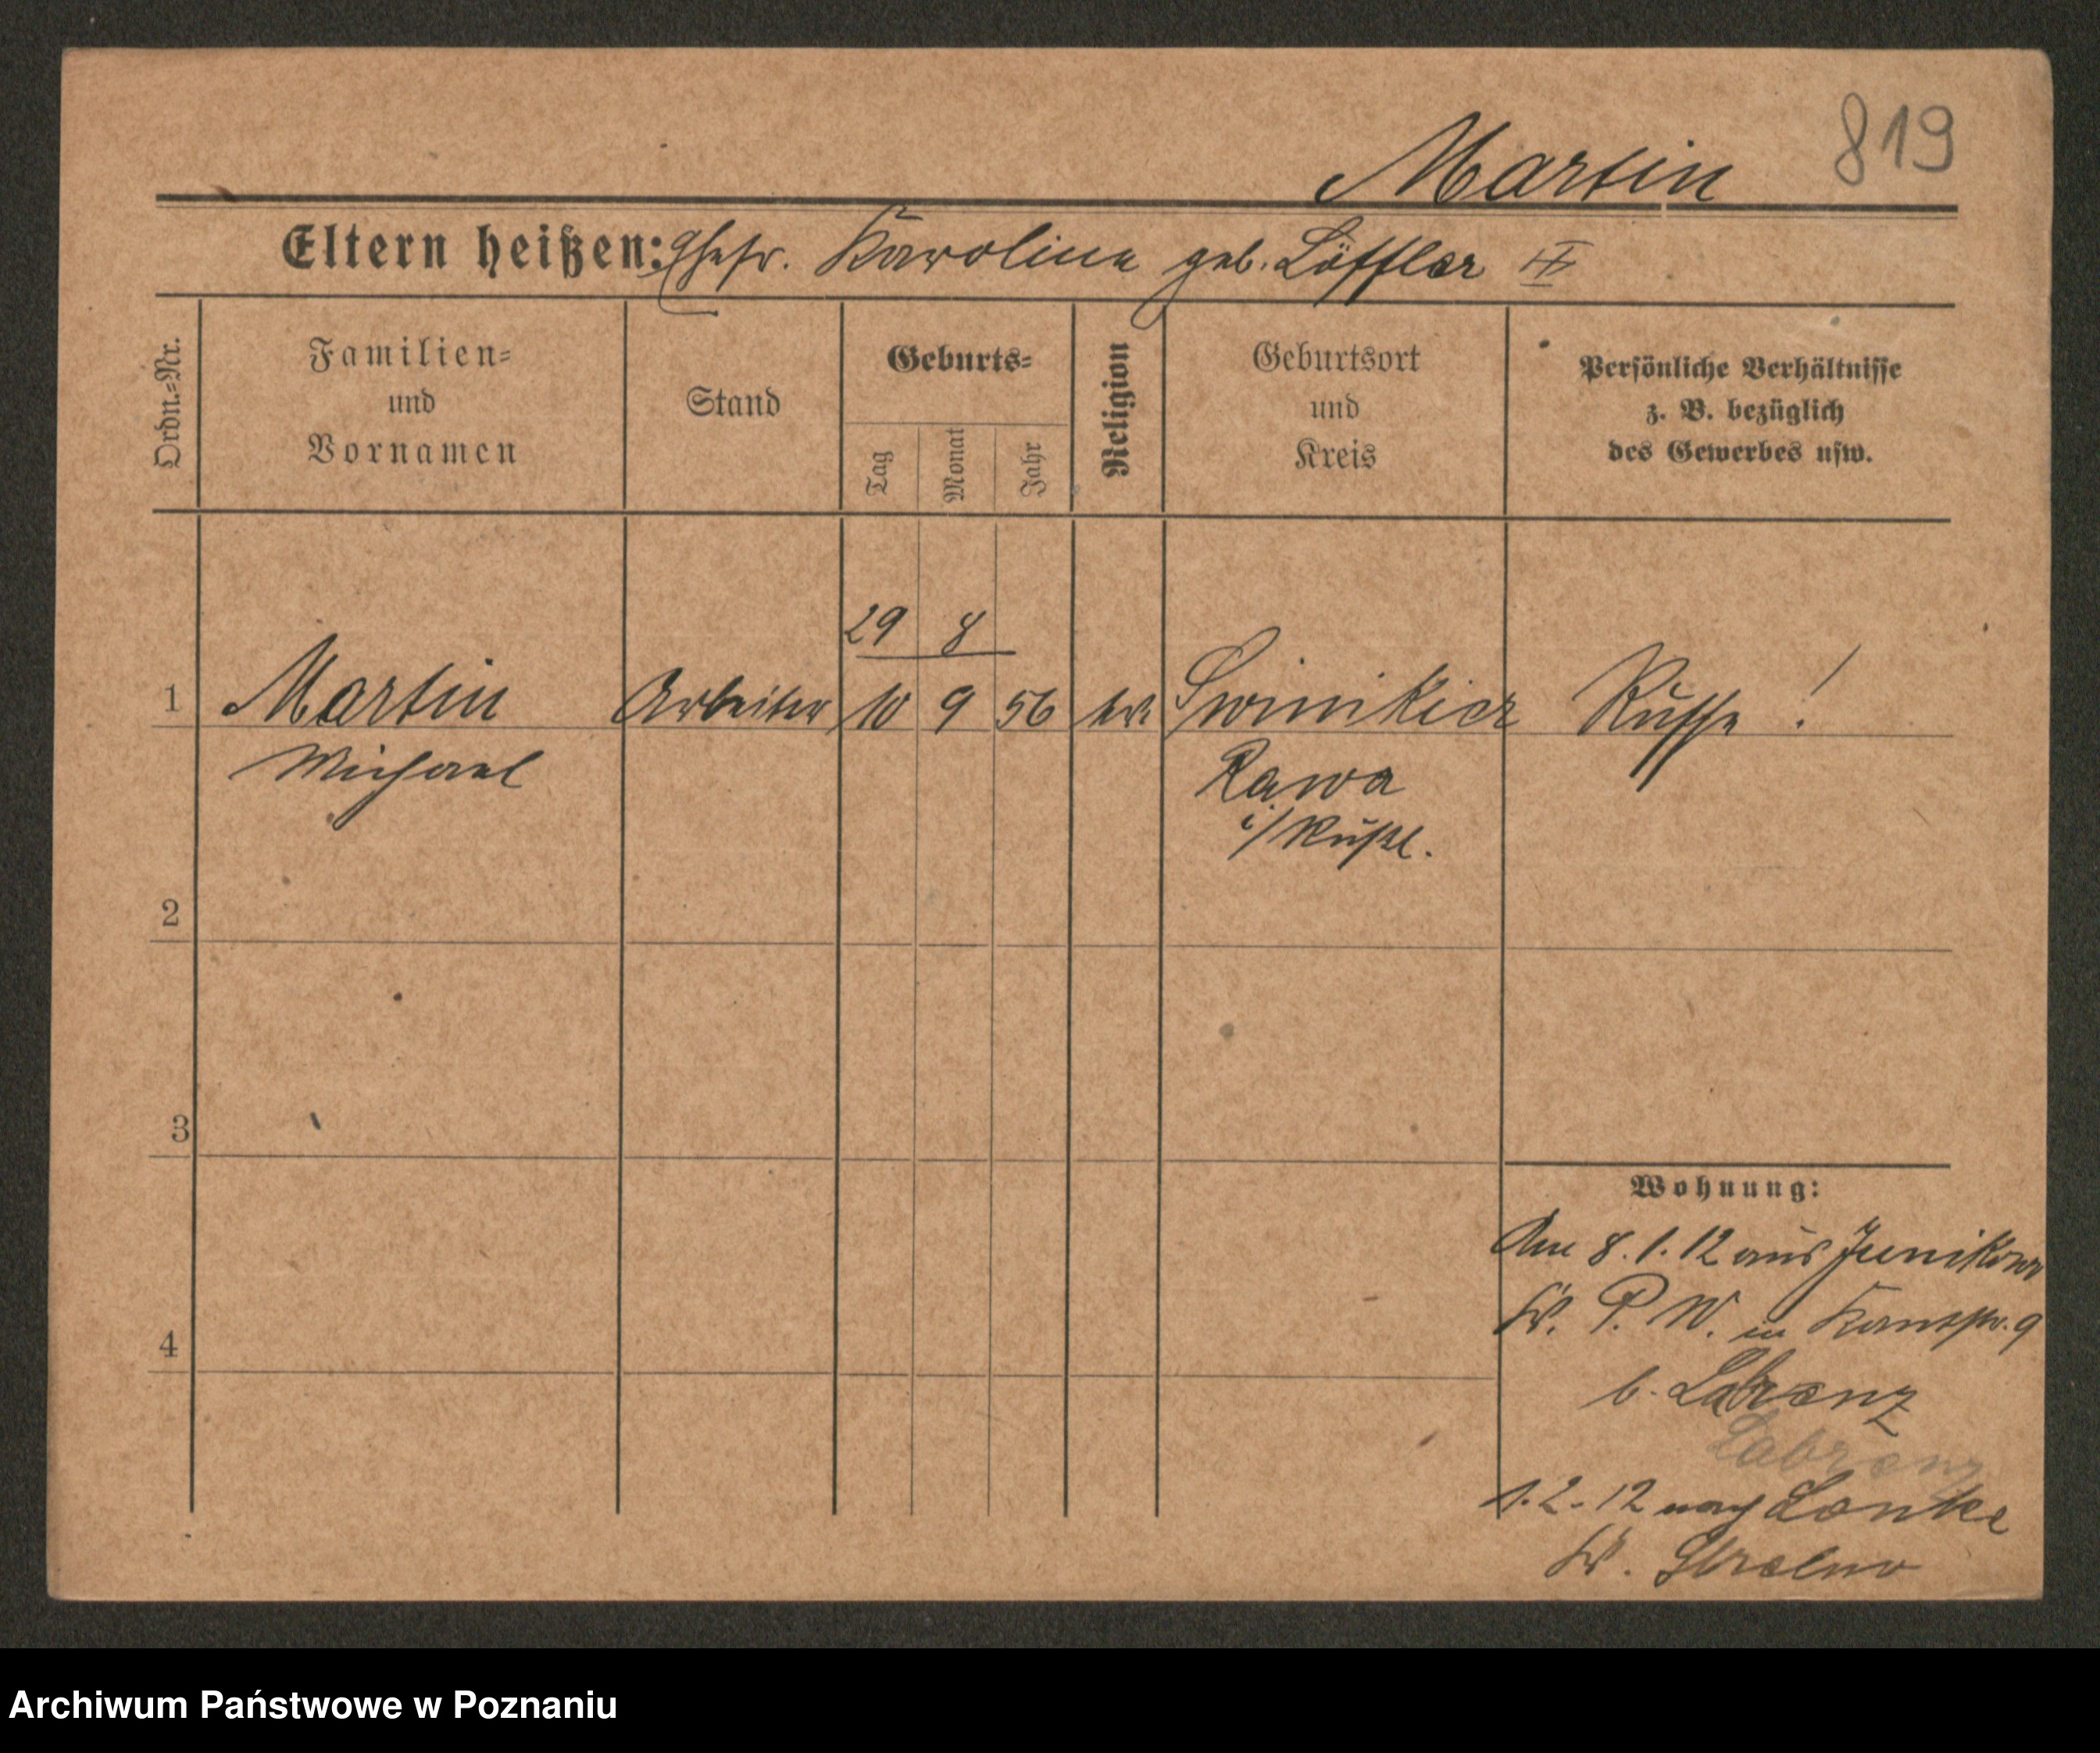 819
Martin
Eltern heißen: Ehefr. Karoline geb. Löffler II
Ordn.=Nr.
Familien=
und
Vornamen
Stand
Geburts=
Tag
Monat
Jahr
Religion
Geburtsort
und
Kreis
Persönliche Verhältnisse
z. B. bezüglich
des Gewerbes usw.
29 8
1 Martin Arbeiter 10 9 56 Russe !
Michael Rawa
i/Rußl.
2
3
4
Wohnung:
Am 8.1.12 aus Junikowo
Kr. P. W. in Kantstr. 9
b. Labrenz
Labrenz
1.2.12 nach Lonke
Kr. Strelno
Archiwum Państwowe w Poznaniu